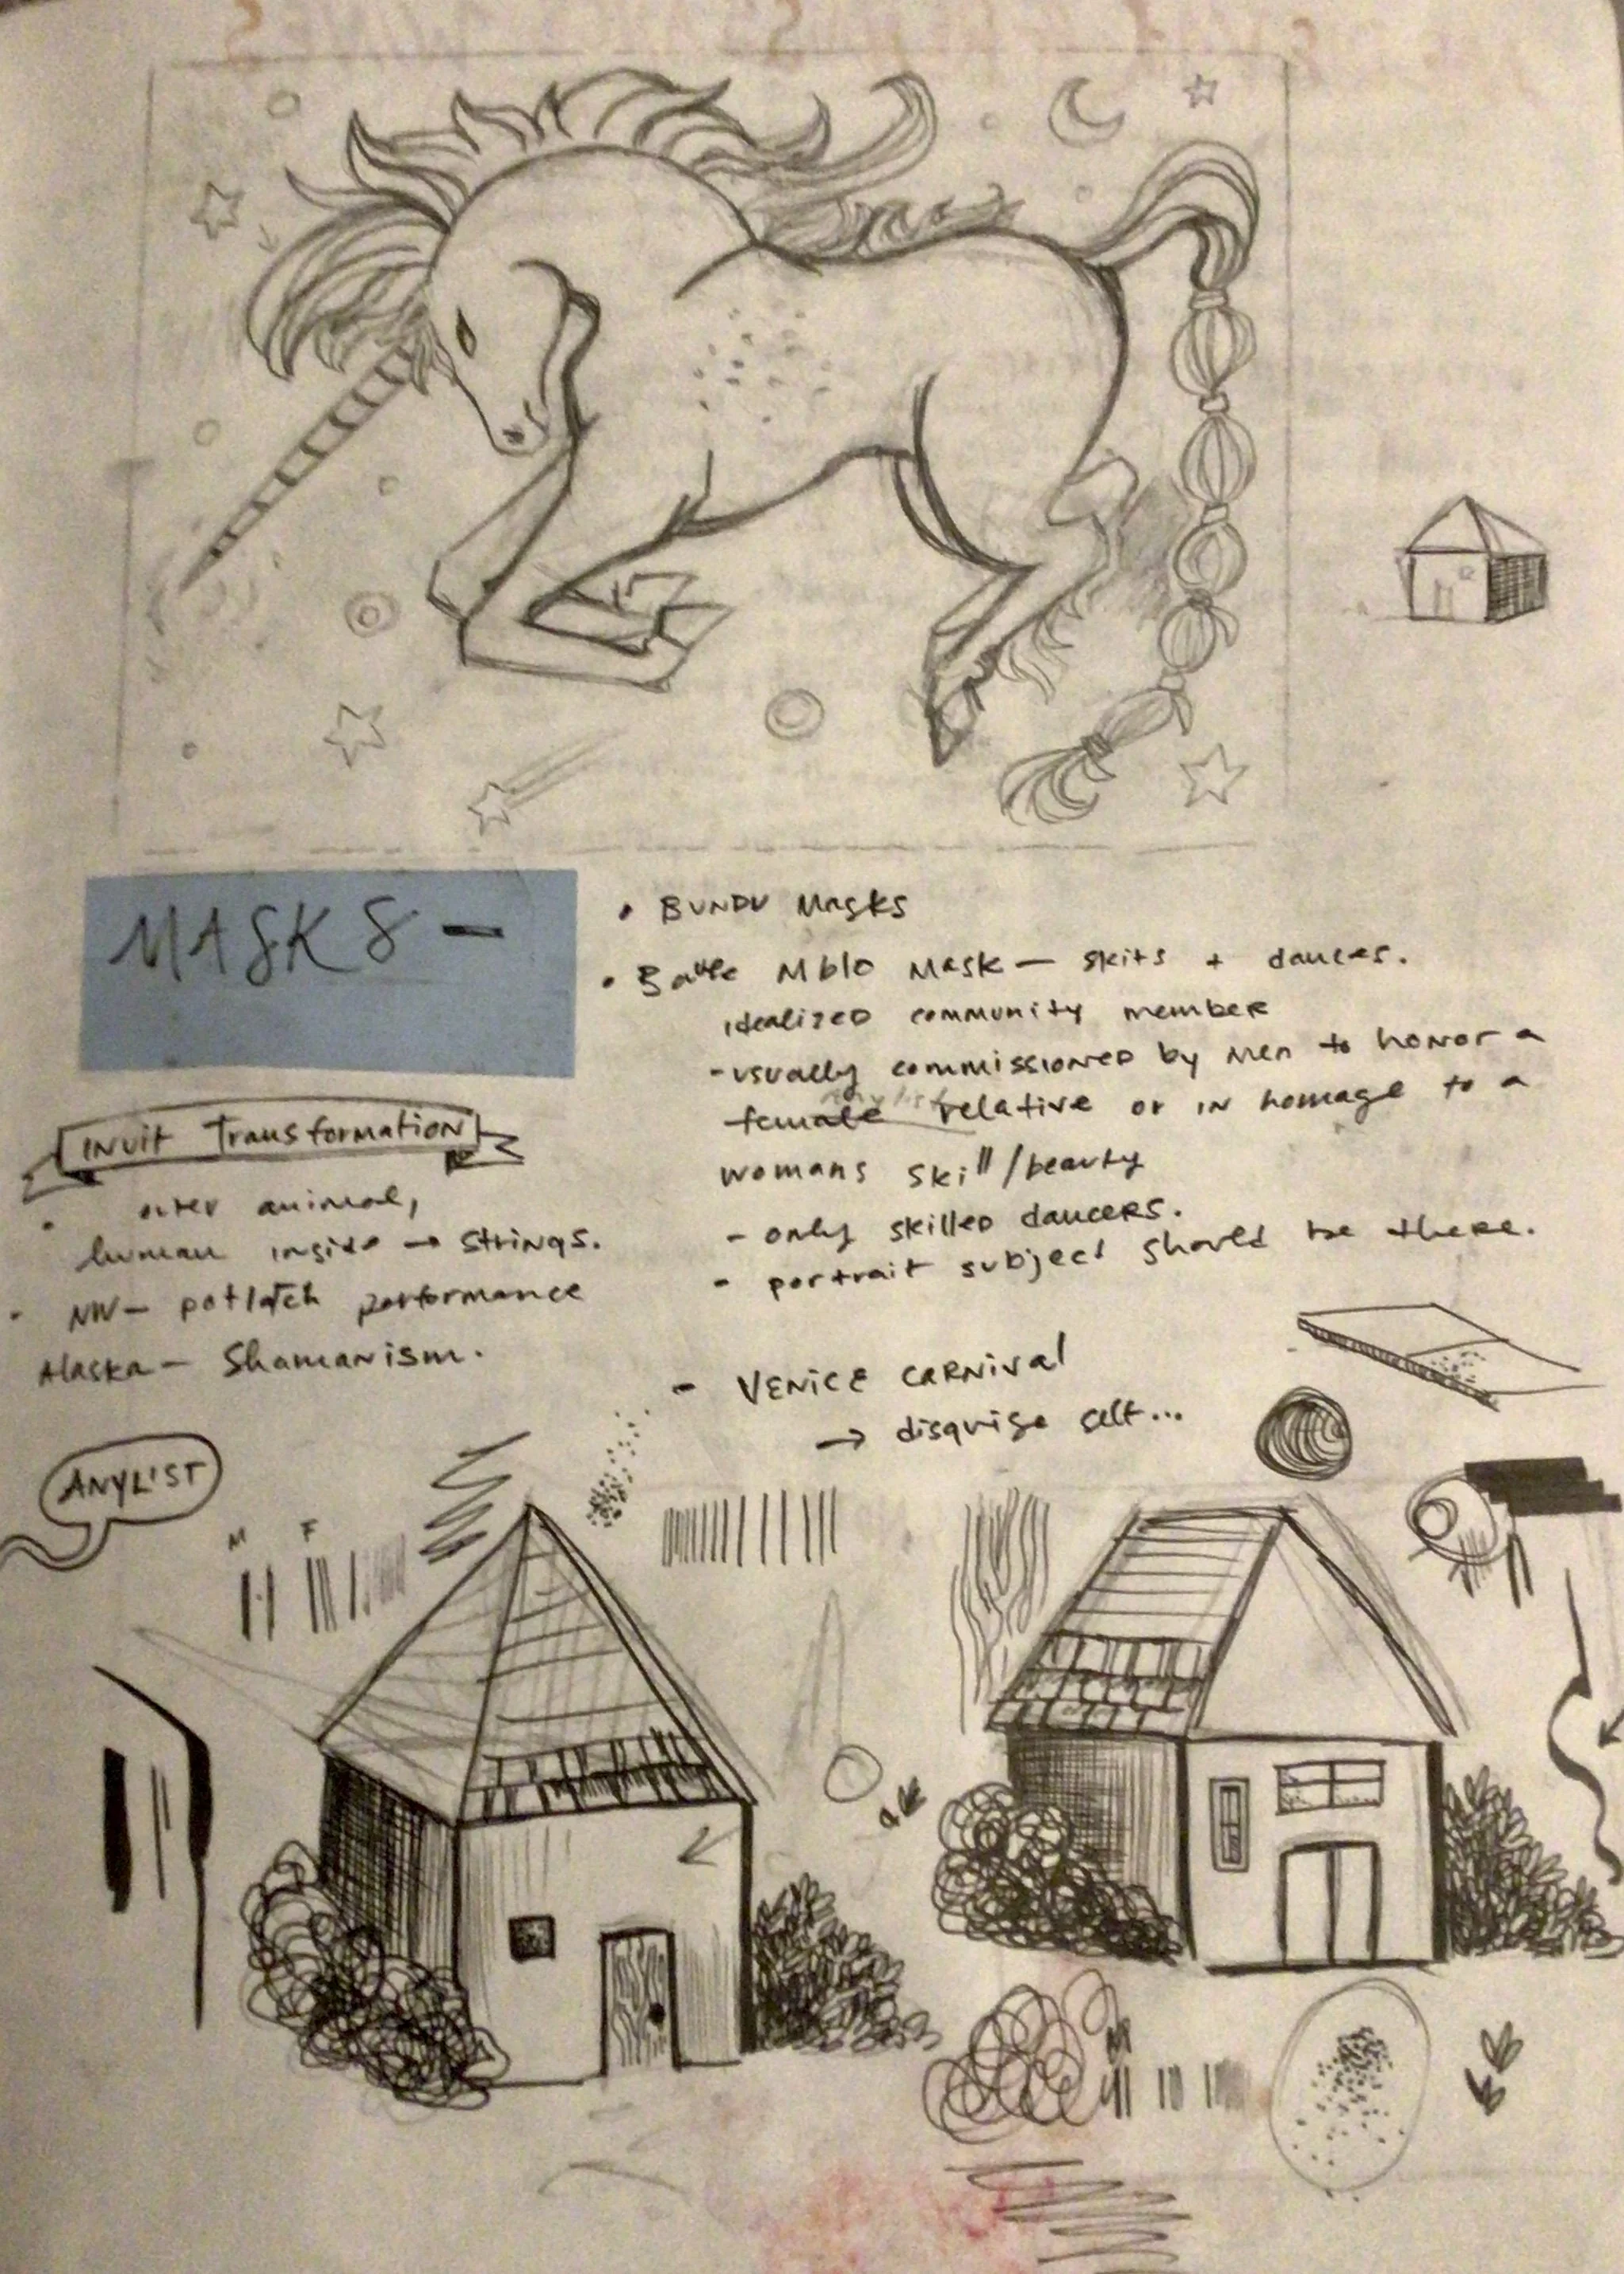 MASKS –
• BUNDU MASKS
• Baule Mblo MASK — skits + dances.
idealized community member
- usually commissioned by men to honor a
female relative or in homage to a
womans skill/beauty
- only skilled dancers.
- portrait subject should be there.
- VENICE CARNIVAL
→ disguise self...
INUIT Transformation
• outer animal,
human inside → strings.
• NW — potlatch performance
Alaska — Shamanism.
ANYLIST
M F